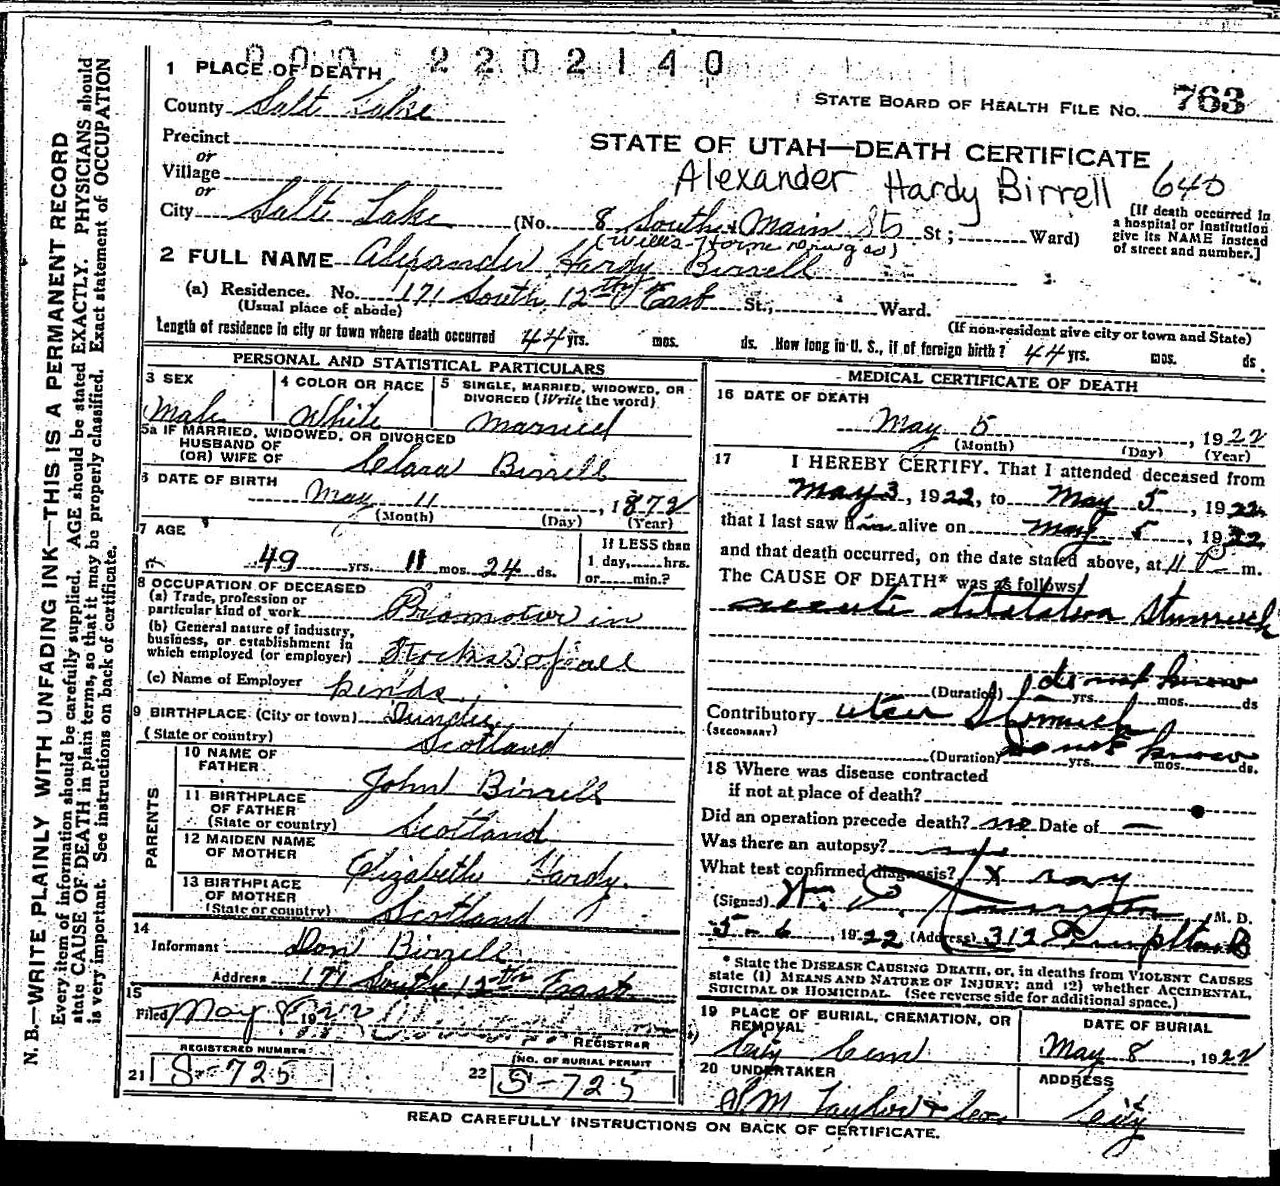 0 0 0 2 2 0 2 1 4 0
1 PLACE OF DEATH
STATE BOARD OF HEALTH FILE NO. 763
County Salt Lake
Precinct
STATE OF UTAH—DEATH CERTIFICATE
or
Village
Alexander Hardy Birrell 640
or
City Salt Lake (No. 8 South Main St St; Ward)
[If death occurred in
a hospital or institution
give its NAME instead
of street and number.]
2 FULL NAME Alexander Hardy Birrell
(a) Residence. No. 171 South 12th East St., Ward.
(Usual place of abode)
(If non-resident give city or town and State)
Length of residence in city or town where death occurred 44 yrs. mos. ds. How long in U. S., if of foreign birth? 44 yrs. mos. ds.
PERSONAL AND STATISTICAL PARTICULARS
3 SEX
Male
4 COLOR OR RACE
White
5 SINGLE, MARRIED, WIDOWED, OR
DIVORCED (Write the word)
Married
5a IF MARRIED, WIDOWED, OR DIVORCED
HUSBAND OF
(OR) WIFE OF Clara Birrell
6 DATE OF BIRTH
May 11, 1872
(Month) (Day) (Year)
7 AGE
49 yrs. 11 mos. 24 ds.
If LESS than
1 day, hrs.
or min.?
8 OCCUPATION OF DECEASED
(a) Trade, profession or
particular kind of work Promoter in
(b) General nature of industry,
business, or establishment in
which employed (or employer) Stocks of all
(c) Name of Employer kinds
9 BIRTHPLACE (City or town) Dundee
(State or country) Scotland
PARENTS
10 NAME OF
FATHER John Birrell
11 BIRTHPLACE
OF FATHER
(State or country) Scotland
12 MAIDEN NAME
OF MOTHER Elizabeth Hardy.
13 BIRTHPLACE
OF MOTHER
(State or country) Scotland
14
Informant Don Birrell
Address 171 South 12th East
15
Filed May 8 1922
REGISTRAR
REGISTERED NUMBER
21 S-725
(NO. OF BURIAL PERMIT
22 S-725
MEDICAL CERTIFICATE OF DEATH
16 DATE OF DEATH
May 5, 1922
(Month) (Day) (Year)
17 I HEREBY CERTIFY. That I attended deceased from
May 3, 1922, to May 5, 1922
that I last saw him alive on May 5, 1922
and that death occurred, on the date stated above, at 11 P m.
The CAUSE OF DEATH* was as follows:
accute dilatation Stumach
do not know
(Duration) yrs. mos. ds
Contributory ulcer Stomach
(SECONDARY)
(Duration) dont know yrs. mos. ds.
18 Where was disease contracted
if not at place of death?
Did an operation precede death? no Date of —
Was there an autopsy? no
What test confirmed diagnosis? X ray
(Signed) Wm M. D.
5-6, 1922 (Address) 312
* State the DISEASE CAUSING DEATH, or, in deaths from VIOLENT CAUSES
state (1) MEANS AND NATURE OF INJURY; and (2) whether ACCIDENTAL,
SUICIDAL OR HOMICIDAL. (See reverse side for additional space.)
19 PLACE OF BURIAL, CREMATION, OR
REMOVAL
City Cem
DATE OF BURIAL
May 8, 1922
20 UNDERTAKER
S.M. Taylor & Co.
ADDRESS
City
READ CAREFULLY INSTRUCTIONS ON BACK OF CERTIFICATE.
N. B.—WRITE PLAINLY WITH UNFADING INK—THIS IS A PERMANENT RECORD
Every item of information should be carefully supplied. AGE should be stated EXACTLY. PHYSICIANS should
state CAUSE OF DEATH in plain terms, so that it may be properly classified. Exact statement of OCCUPATION
is very important. See instructions on back of certificate.